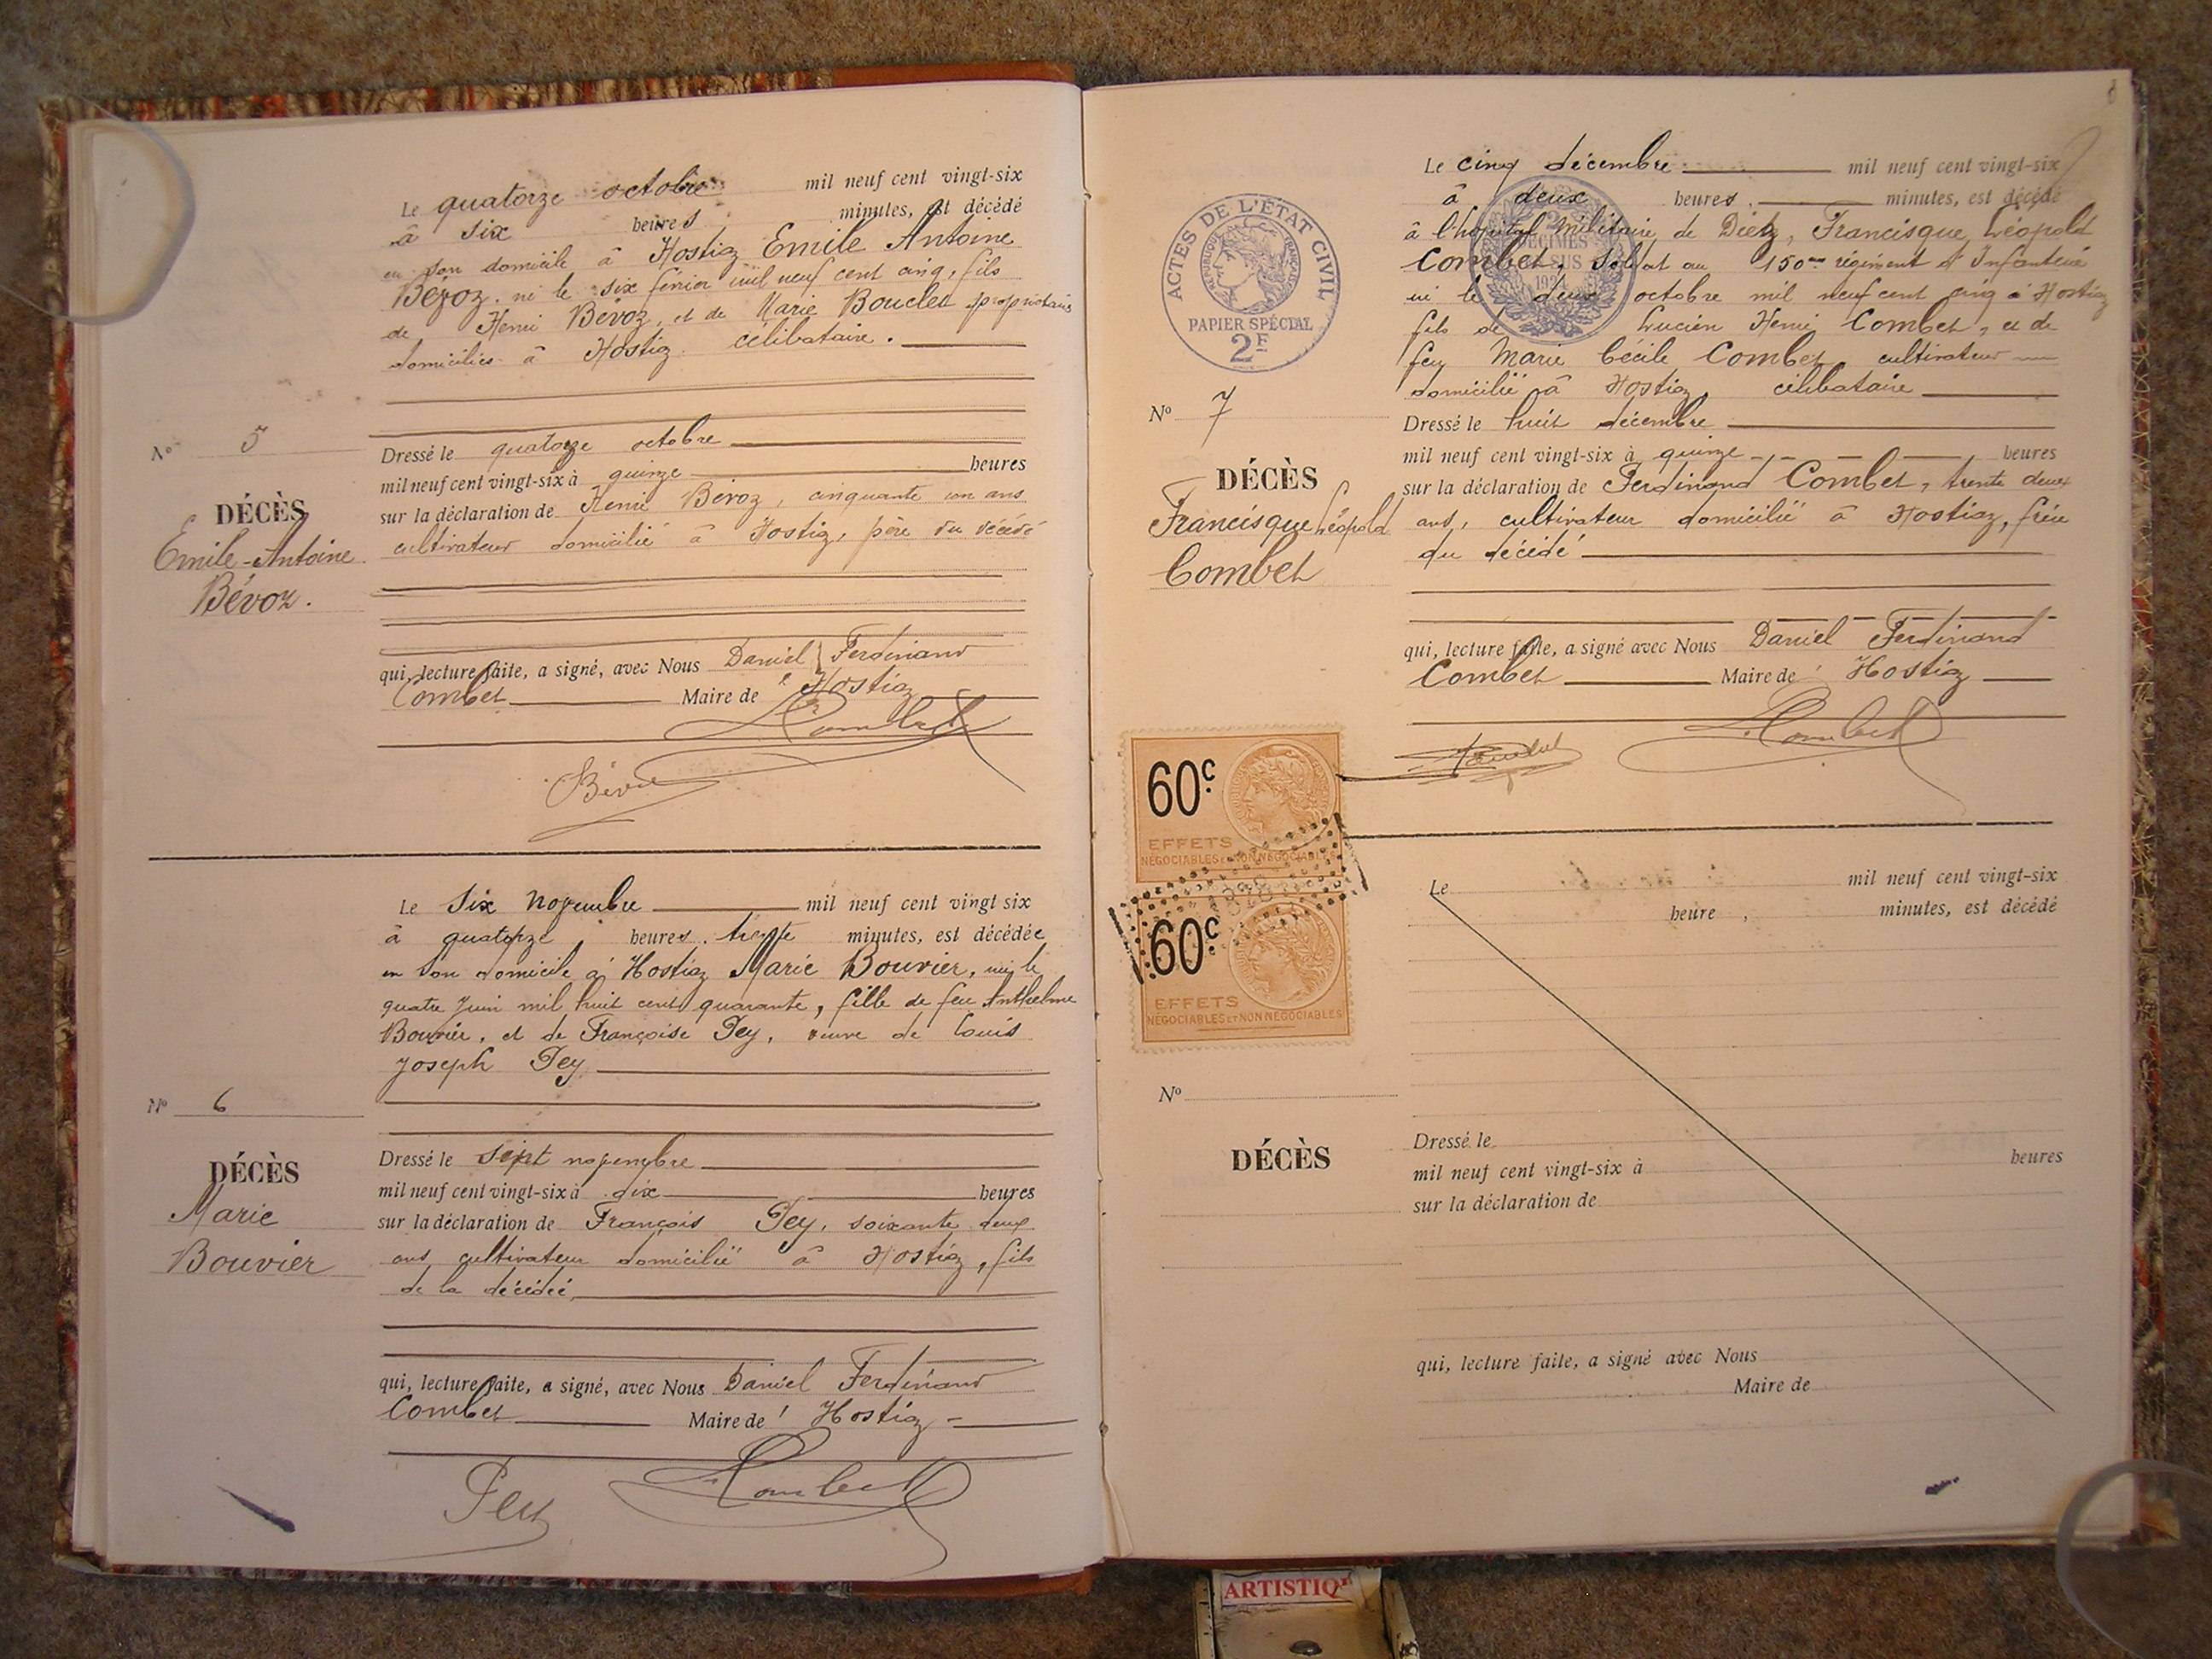 Le quatorze octobre mil neuf cent vingt-six
à six heures minutes, est décédé
en son domicile à Hostiaz Emile Antoine
Bévoz, né le six février mil neuf cent cinq, fils
de Henri Bévoz, et de Marie Bouclet propriétaires
domiciliés à Hostiaz célibataire.
Nº 5
DÉCÈS
Emile-Antoine
Bévoz.
Dressé le quatorze octobre
mil neuf cent vingt-six à quinze heures
sur la déclaration de Henri Bévoz, cinquante un ans
cultivateur domicilié à Hostiaz, père du décédé
qui, lecture faite, a signé, avec Nous Daniel Ferdinand
Combet Maire de Hostiaz
Combet
Bévoz
Le six novembre mil neuf cent vingt six
à quatorze heures trente minutes, est décédée
en son domicile à Hostiaz Marie Bouvier, née le
quatre juin mil huit cent quarante, fille de feu Anthelme
Bouvier, et de Françoise Pey, veuve de Louis
Joseph Pey
Nº 6
DÉCÈS
Marie
Bouvier
Dressé le sept novembre
mil neuf cent vingt-six à dix heures
sur la déclaration de François Pey, soixante deux
ans cultivateur domicilié à Hostiaz, fils
de la décédée
qui, lecture faite, a signé, avec Nous Daniel Ferdinand
Combet Maire de Hostiaz
Pey
Combet
Le cinq décembre mil neuf cent vingt-six
à deux heures, minutes, est décédé
à l'hopital Militaire de Dietz, Francisque Léopold
Combet, soldat au 150me régiment d'Infanterie
né le deux octobre mil neuf cent cinq à Hostiaz
fils de Lucien Henri Combet, et de
feu Marie Cécile Combet cultivateur
domicilié à Hostiaz, célibataire
ACTES DE L'ÉTAT CIVIL
RÉPUBLIQUE FRANÇAISE
PAPIER SPÉCIAL
2F
2
DÉCIMES
EN SUS
1924
Nº 7
DÉCÈS
Francisque Léopold
Combet
Dressé le huit décembre
mil neuf cent vingt-six à quinze heures
sur la déclaration de Ferdinand Combet, trente deux
ans, cultivateur domicilié à Hostiaz, frère
du décédé
qui, lecture faite, a signé avec Nous Daniel Ferdinand
Combet Maire de Hostiaz
Combet
60c
EFFETS
NÉGOCIABLES ET NON NÉGOCIABLES
60c
EFFETS
NÉGOCIABLES ET NON NÉGOCIABLES
Le mil neuf cent vingt-six
heure , minutes, est décédé
Nº
DÉCÈS
Dressé le
mil neuf cent vingt-six à heures
sur la déclaration de
qui, lecture faite, a signé avec Nous
Maire de
ARTISTIQ